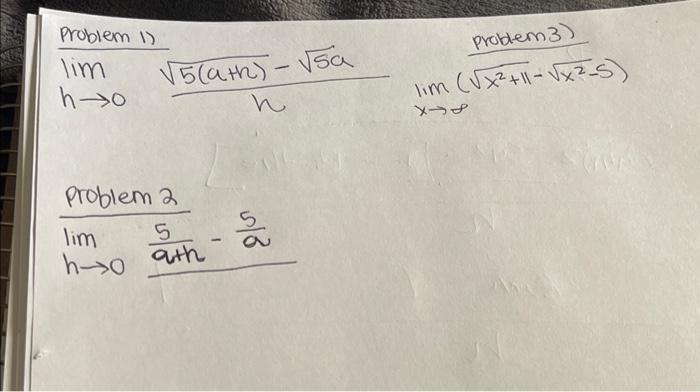 Problem 1)
lim h→0 (√5(a+h) - √5a) / h
Problem 3)
lim x→∞ (√x²+11 - √x²-5)
Problem 2
lim h→0 5/(a+h) - 5/a